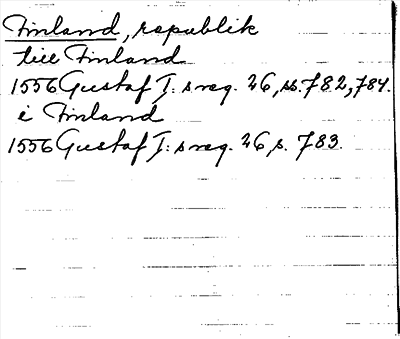 Finland, republik
till Finland
1556 Gustaf I: s reg. 26, ss. 782, 784.
i Finland
1556 Gustaf I: s reg. 26, s. 783.